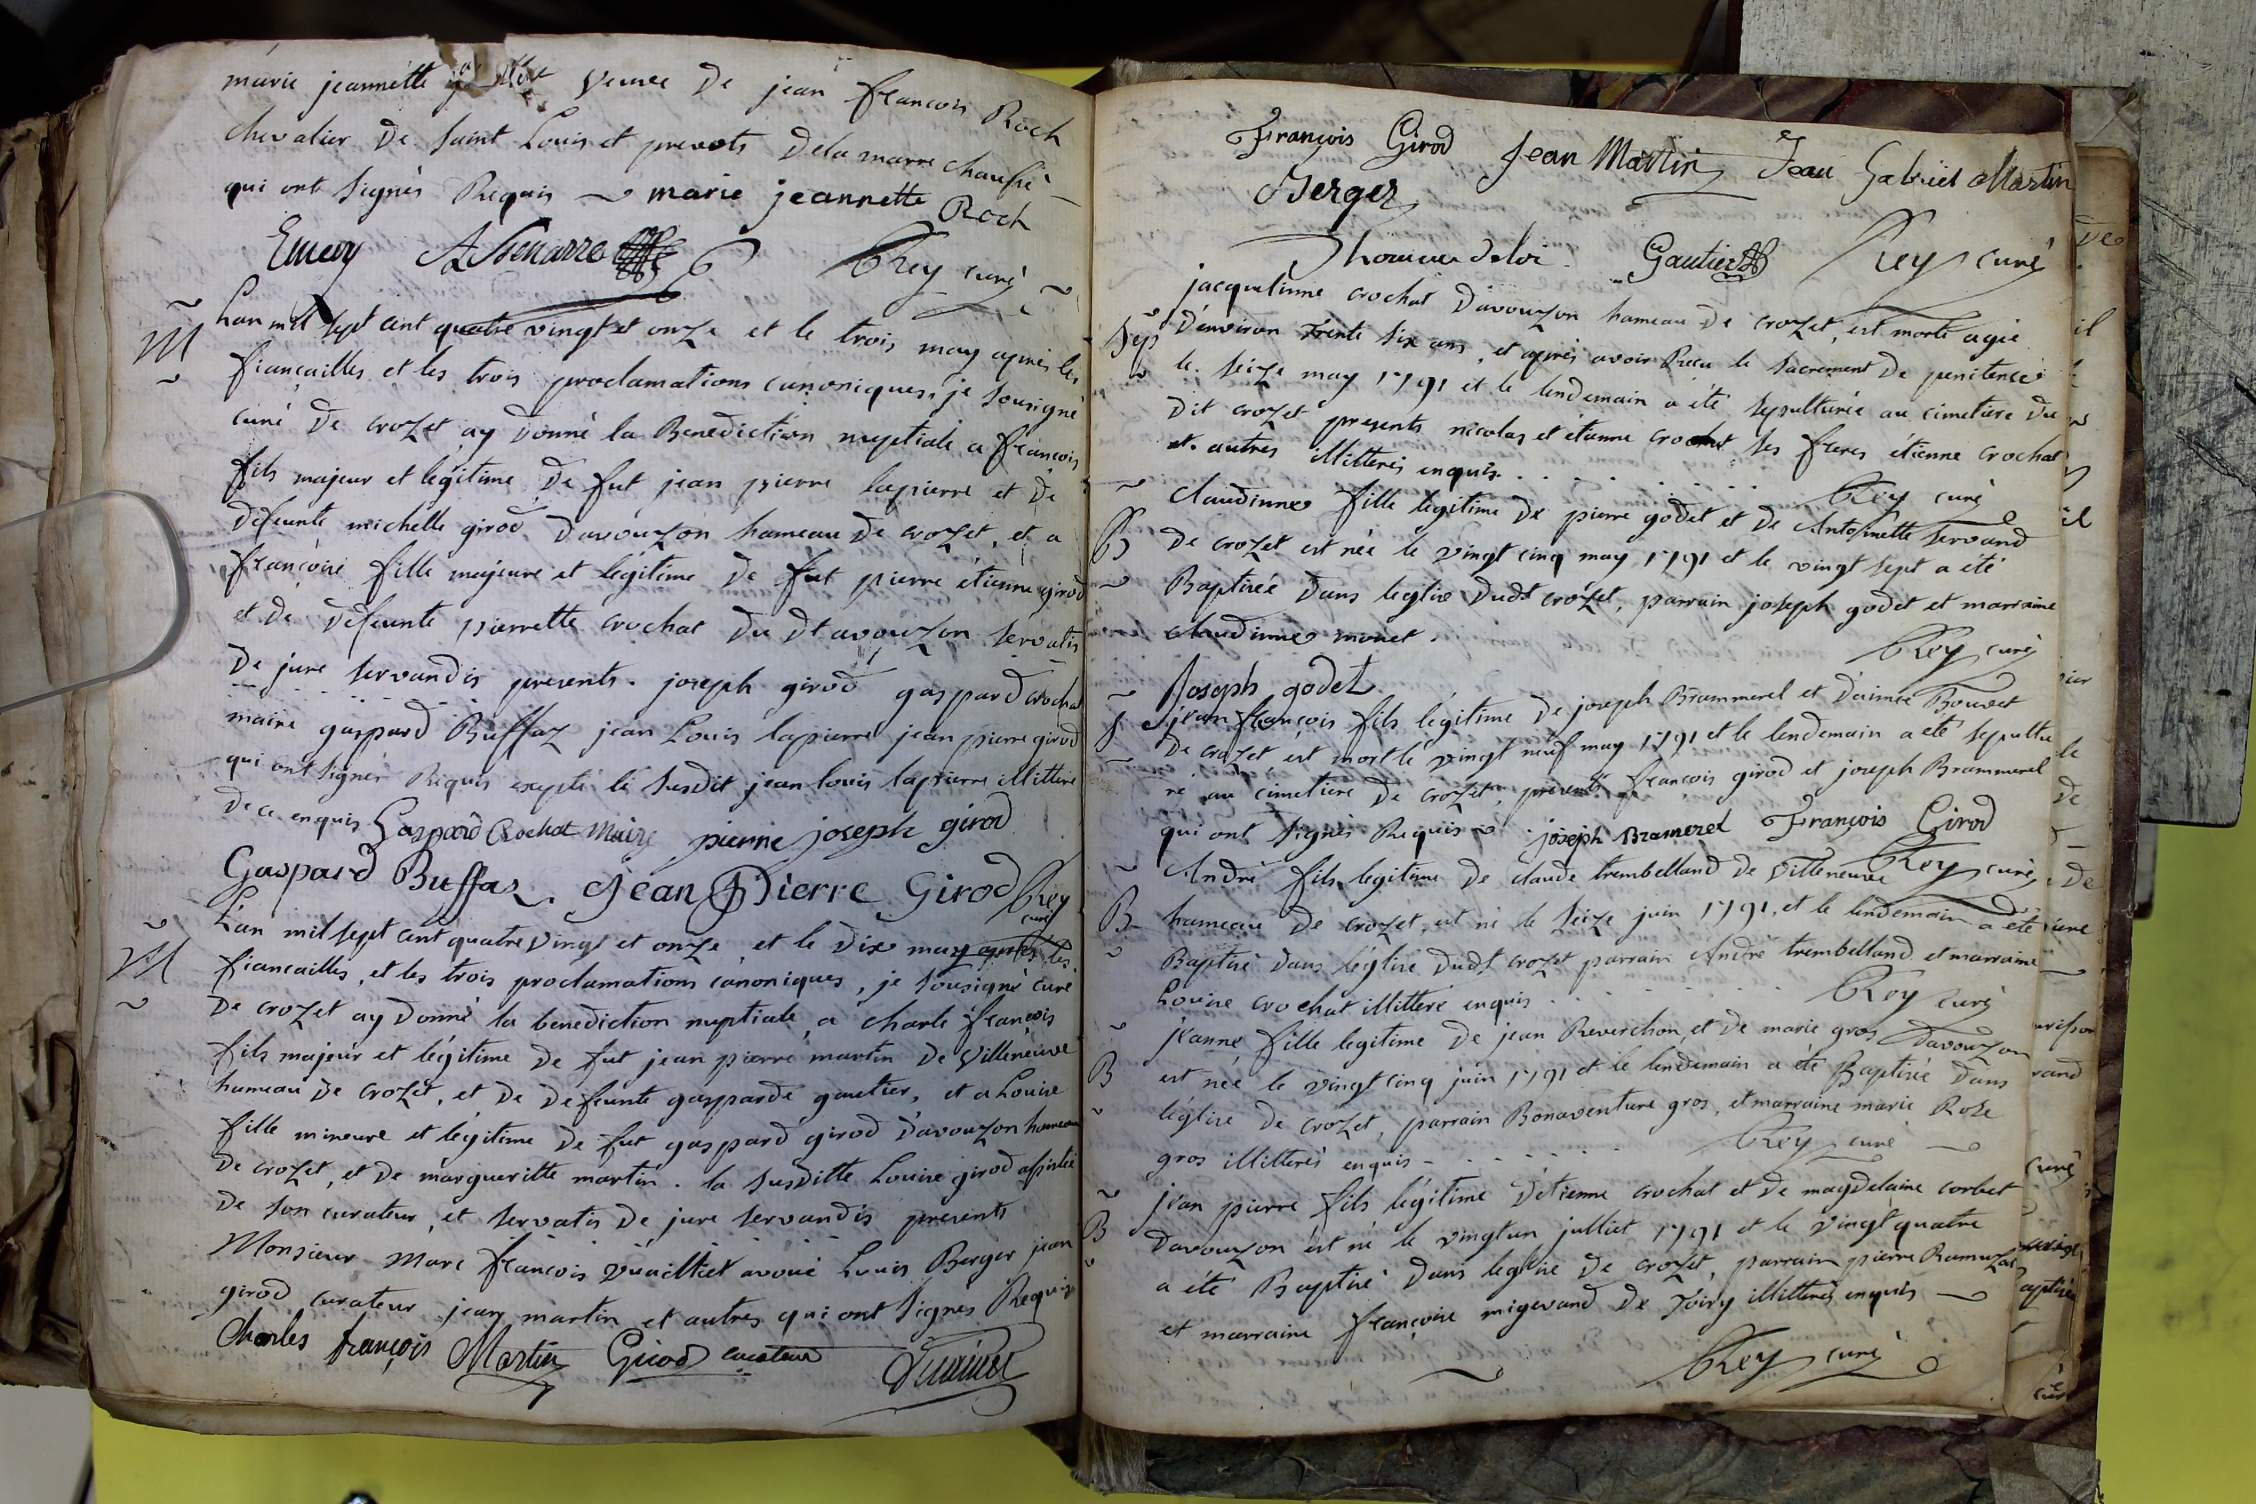 marie jeannette veuve De jean françois Roch
chevalier De saint Louis et prevots Dela marre chaussé
qui ont signés Requis marie jeannette Roch
Emery Rey curé
M
Lan mil sept cent quatre vingt et onze et le trois may aprés les
fiançailles et les trois proclamations canoniques, je sousigné
curé De crozet ay Donné la Benediction nuptiale a françois
fils majeur et légitime De fut jean pierre lapierre et De
Défeunte michelle girod Davouzon hameau De crozet, et a
françoise fille majeure et légitime De fut pierre étienne girod
et De Défeunte pierrette crochat Du Dt avouzon servatis
De jure servandis presents. joseph girod gaspard crochat
maire gaspard Buffaz jean Louis lapierre jean pierre girod
qui ont signés Requis expté le susdit jean louis lapierre illitteré
De ce enquis Gaspard Crochat Maire pierre joseph girod
Gaspard Buffaz. Jean Pierre Girod Rey
curé
M
L'an mil sept cent quatre vingt et onze et le Dix may aprés les
fiancailles, et les trois proclamations canoniques, je sousigné curé
De crozet ay Donné la benediction nuptiale a charle françois
fils majeur et légitime De fut jean pierre martin De Villeneuve
hameau De crozet, et De Defeunte gasparde gautier, et a Louise
fille mineure et légitime De fut gaspard girod D'avouzon hameau
De crozet, et De margueritte martin. la susditte Louise girod assistée
De son curateur, et servatis De jure servandis presents
Monsieur Marc françois vuailliet avoué Louis Berger jean
girod curateur jean martin et autres qui ont signés Requis
Charles françois Martin Girod curateur
François Girod Jean Martin Jean Gabriel Martin
Berger
Gautier Rey curé
jacquelinne crochat Davouzon hameau De crozet, est morte agée
Sep D'environ Trente six ans, et aprés avoir Recu le sacrement De penitence
le seize may 1791 et le lendemain a été sepulturée au cimetiere Du
Dit crozet presents nicolas et étienne crochat ses freres étienne crochat
et autres illitterés enquis. Rey curé
claudinne fille légitime De pierre godet et De Antoinette servand
B De crozet est née le vingt cinq may 1791 et le vingt sept a été
Baptisée Dans léglise Dudt crozet, parrain joseph godet et marraine
claudinne monet.
Rey curé
Joseph godet
jean françois fils légitime De joseph Brammerel et D'aimée Bouvet
S De crozet est mort le vingt neuf may 1791 et le lendemain a été sepultu
ré au cimetiere De crozet, présents françois girod et joseph Brammerel
qui ont signés Requis joseph Bramerel François Girod
Rey curé
André fils légitime De claude trembelland De Villeneuve
B hameau De crozet, est né le seize juin 1791, et le lendemain a été
Baptisé Dans léglise Dudt crozet parrain André trembelland et marraine
Louise crochat illitteré enquis Rey curé
jeanne fille legitime De jean Reverchon, et De marie gros Davouzon
B est née le vingt cinq juin 1791 et le lendemain a été Baptisée Dans
léglise De crozet, parrain Bonaventure gros, et marraine marie Roze
gros illitterés enquis Rey curé
jean pierre fils légitime D'étienne crochat et De magdelaine corbet
B Davouzon est né le vingt un julliet 1791 et le vingt quatre
a été Baptisé Dans leglise De crozet, parrain pierre Ramuzat
et marraine françoise migevand De Toiry illitterés enquis
Rey curé